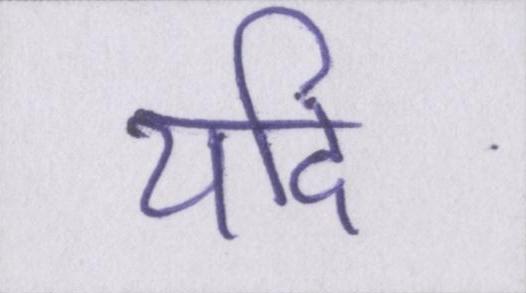 यदि